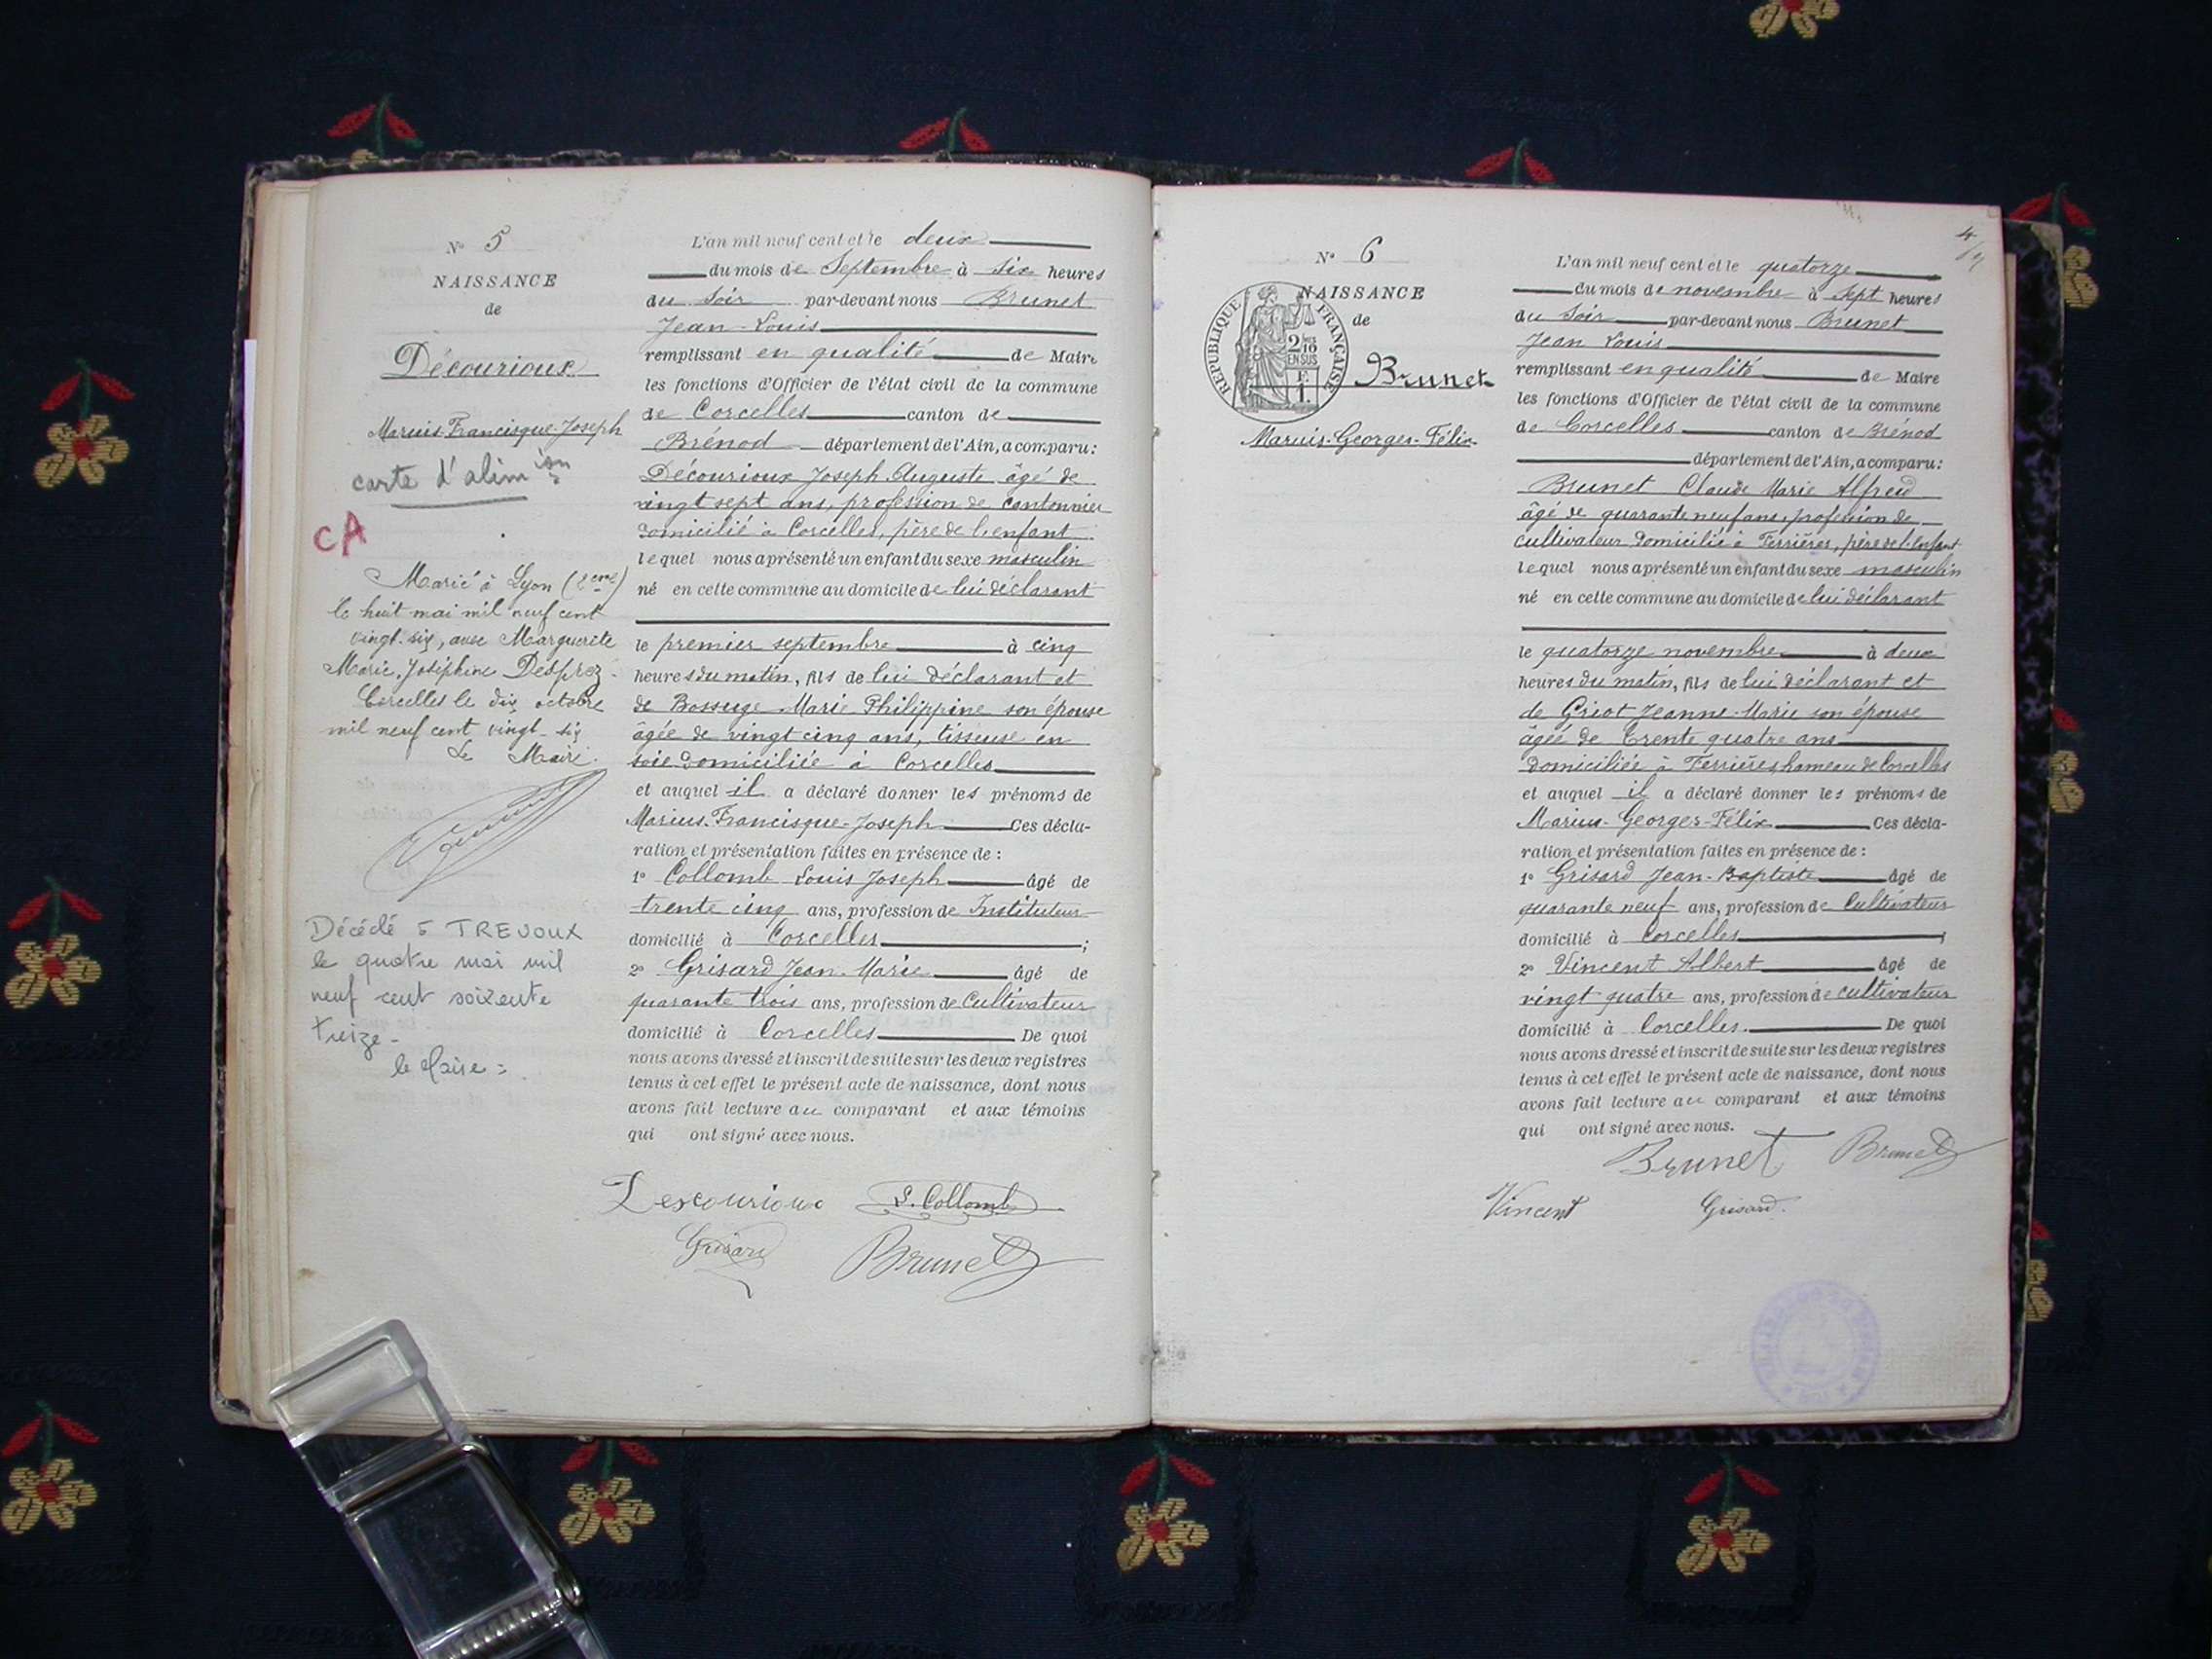 N° 5
NAISSANCE
de
Décourioux
Marius-Francisque-Joseph
carte d'alim
CA
Marié à Lyon (2eme)
le huit mai mil neuf cent
vingt-six, avec Marguerite
Marie, Joséphine Desprez.
Corcelles le dix octobre
mil neuf cent vingt-six
Le Maire.
Décédé à TREVOUX
le quatre mai mil
neuf cent soixante
treize-
le Maire =
L'an mil neuf cent et le deux
du mois de Septembre à six heures
du soir par-devant nous Brunet
Jean-Louis
remplissant en qualité de Maire
les fonctions d'Officier de l'état civil de la commune
de Corcelles canton de
Brénod département de l'Ain, a comparu:
Décourioux Joseph Auguste âgé de
vingt sept ans, profession de cantonnier
domicilié à Corcelles, père de l'enfant
lequel nous a présenté un enfant du sexe masculin
né en cette commune au domicile de lui déclarant
le premier septembre à cinq
heures du matin, fils de lui déclarant et
de Bossuge Marie Philippine son épouse
âgée de vingt cinq ans, tisseuse en
soie domiciliée à Corcelles
et auquel il a déclaré donner les prénoms de
Marius-Francisque-Joseph Ces décla-
ration et présentation faites en présence de :
1° Collomb Louis Joseph âgé de
trente cinq ans, profession de Instituteur
domicilié à Corcelles ;
2° Grisard Jean-Marie âgé de
quarante trois ans, profession de Cultivateur
domicilié à Corcelles De quoi
nous avons dressé et inscrit de suite sur les deux registres
tenus à cet effet le présent acte de naissance, dont nous
avons fait lecture au comparant et aux témoins
qui ont signé avec nous.
Descourioux L. Collomb
Grisard Brunet
4
N° 6
NAISSANCE
de
REPUBLIQUE FRANÇAISE
2/10
EN SUS
F.
1.
Brunet
Marius-Georges-Félix
L'an mil neuf cent et le quatorze
du mois de novembre à sept heures
du soir par-devant nous Brunet
Jean Louis
remplissant en qualité de Maire
les fonctions d'Officier de l'état civil de la commune
de Corcelles canton de Brénod
département de l'Ain, a comparu:
Brunet Claude Marie Alfred
âgé de quarante neuf ans, profession de
cultivateur domicilié à Ferrières, père de l'enfant
lequel nous a présenté un enfant du sexe masculin
né en cette commune au domicile de lui déclarant
le quatorze novembre à deux
heures du matin, fils de lui déclarant et
de Griot Jeanne-Marie son épouse
âgée de trente quatre ans
domiciliée à Ferrières hameau de Corcelles
et auquel il a déclaré donner les prénoms de
Marius-Georges-Félix Ces décla-
ration et présentation faites en présence de :
1° Grisard Jean-Baptiste âgé de
quarante neuf ans, profession de Cultivateur
domicilié à Corcelles ;
2° Vincent Albert âgé de
vingt quatre ans, profession de cultivateur
domicilié à Corcelles. De quoi
nous avons dressé et inscrit de suite sur les deux registres
tenus à cet effet le présent acte de naissance, dont nous
avons fait lecture au comparant et aux témoins
qui ont signé avec nous.
Brunet Brunet
Vincent Grisard